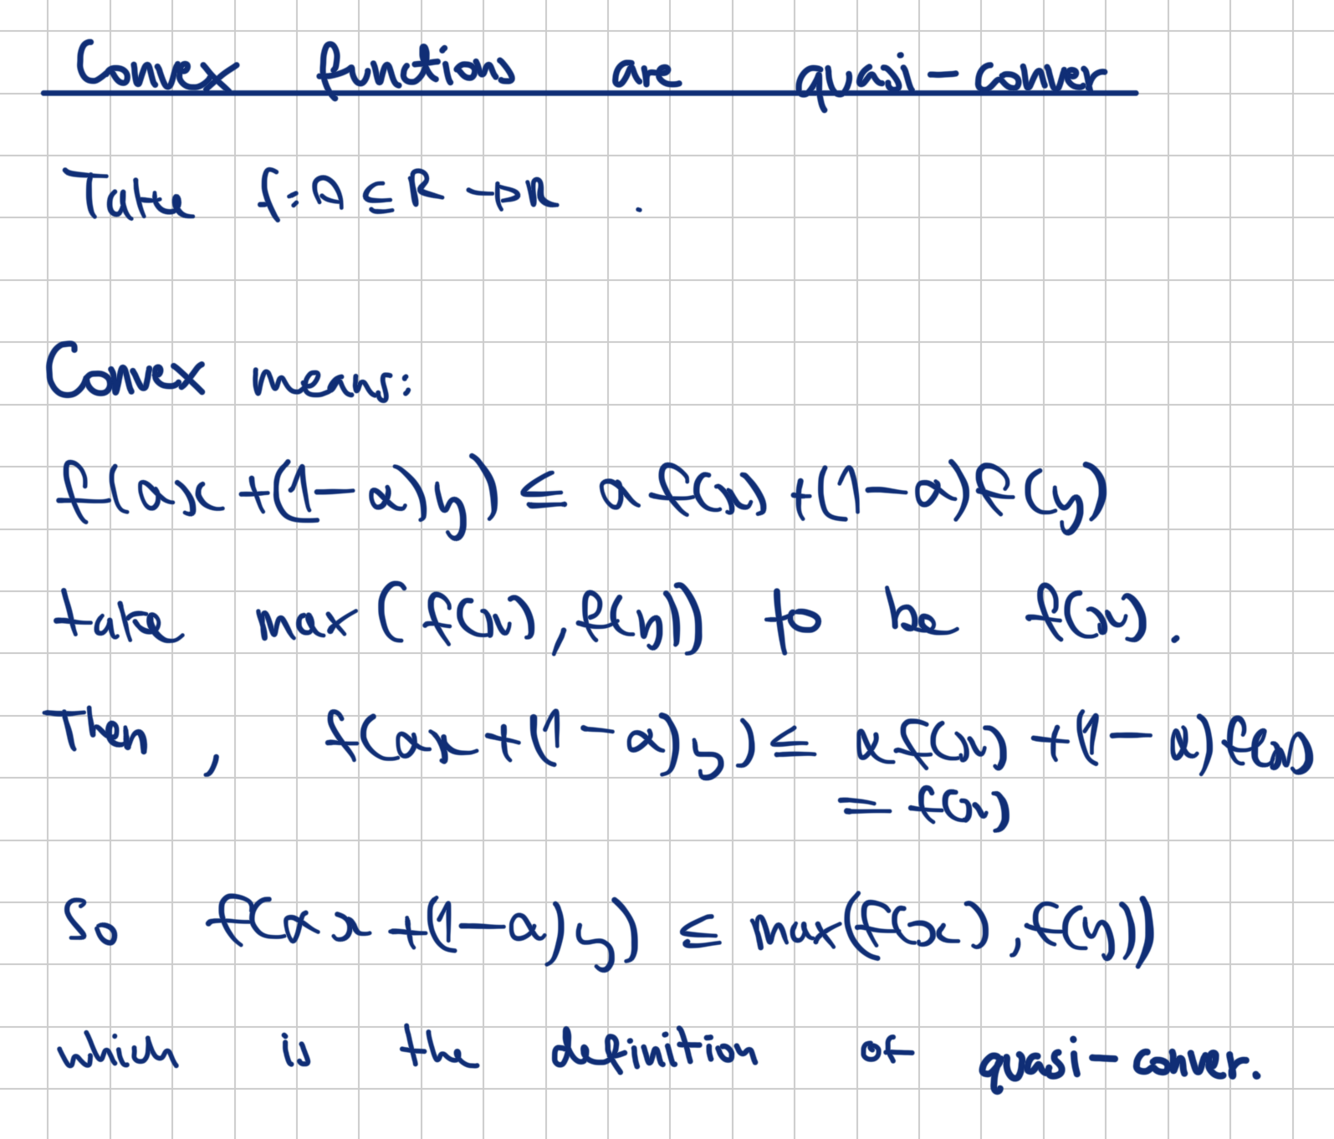 Convex functions are quasi-conver
Take f: A ⊆ R → R .
Convex means:
f(αx + (1-α)y) ≤ αf(x) + (1-α)f(y)
take max(f(x), f(y)) to be f(x).
Then, f(αx + (1-α)y) ≤ αf(x) + (1-α)f(x)
= f(x)
So f(αx + (1-α)y) ≤ max(f(x), f(y))
which is the definition of quasi-conver.